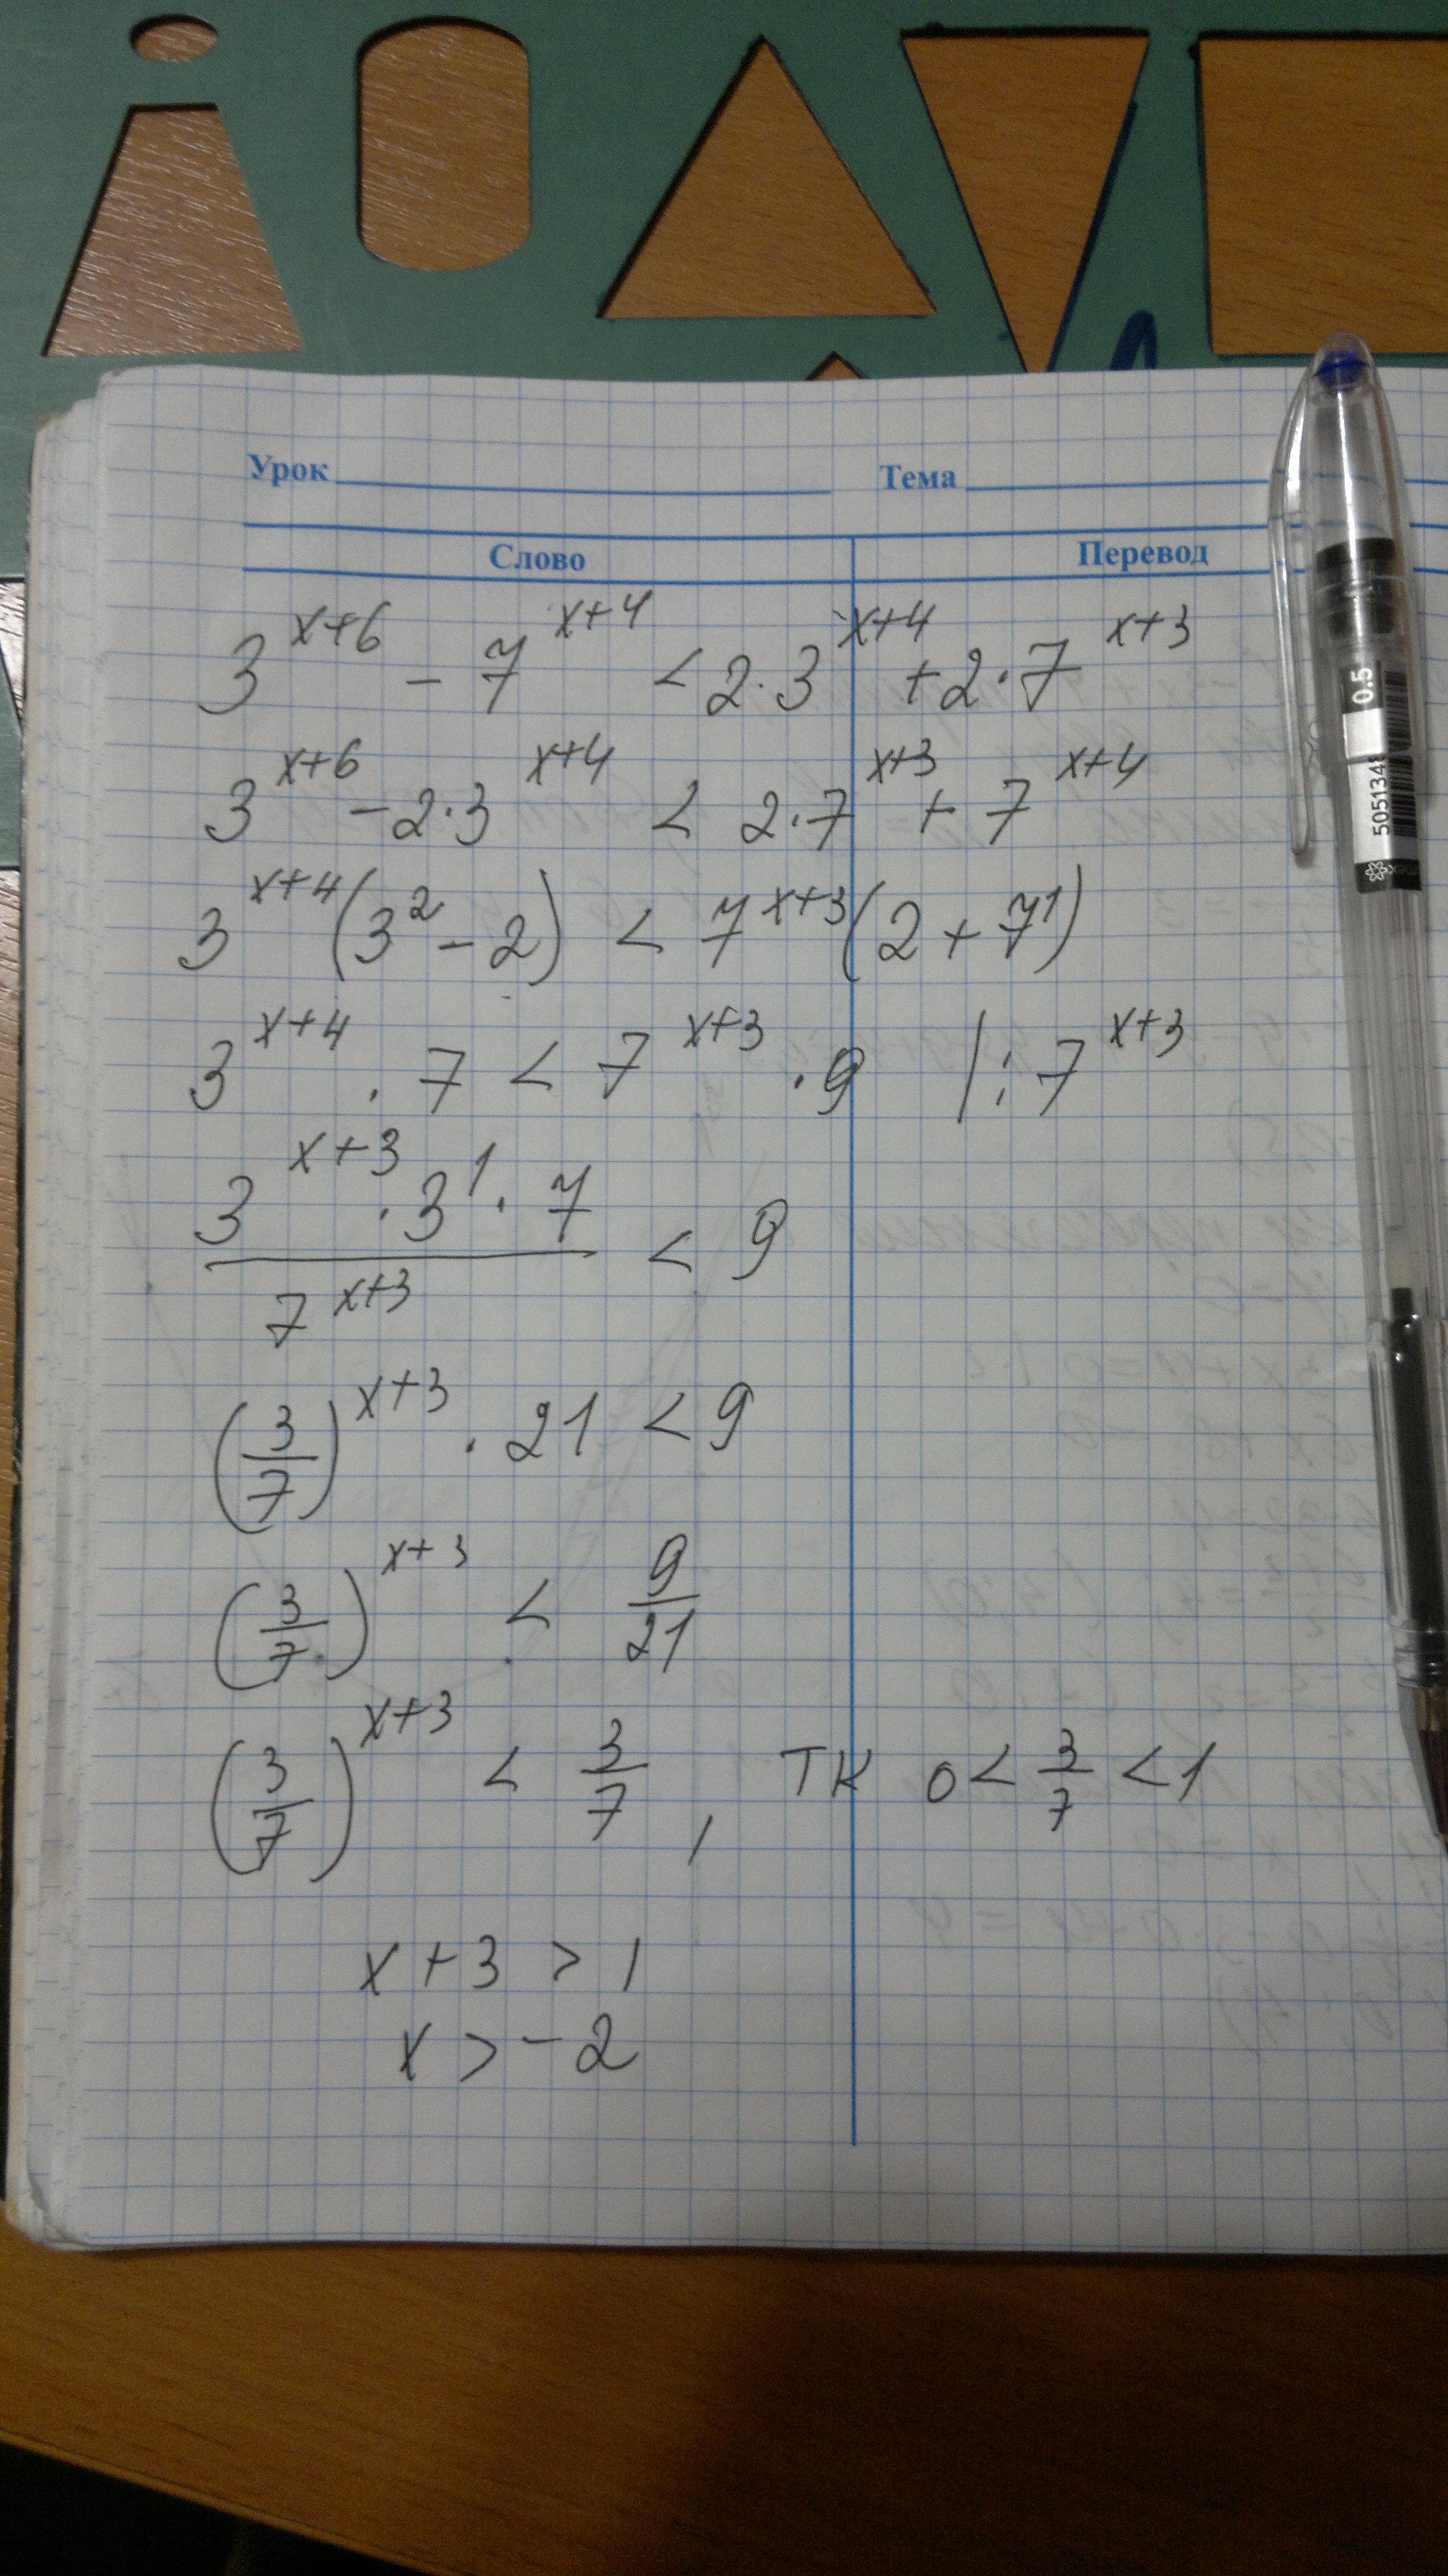 Урок Тема
Слово Перевод
3^(x+6) - 7^(x+4) < 2·3^(x+4) + 2·7^(x+3)
3^(x+6) - 2·3^(x+4) < 2·7^(x+3) + 7^(x+4)
3^(x+4) (3^2 - 2) < 7^(x+3) (2 + 7^1)
3^(x+4) · 7 < 7^(x+3) · 9 | : 7^(x+3)
(3^(x+3) · 3^1 · 7) / 7^(x+3) < 9
(3/7)^(x+3) · 21 < 9
(3/7)^(x+3) < 9/21
(3/7)^(x+3) < 3/7, тк 0 < 3/7 < 1
x + 3 > 1
x > -2
0.5